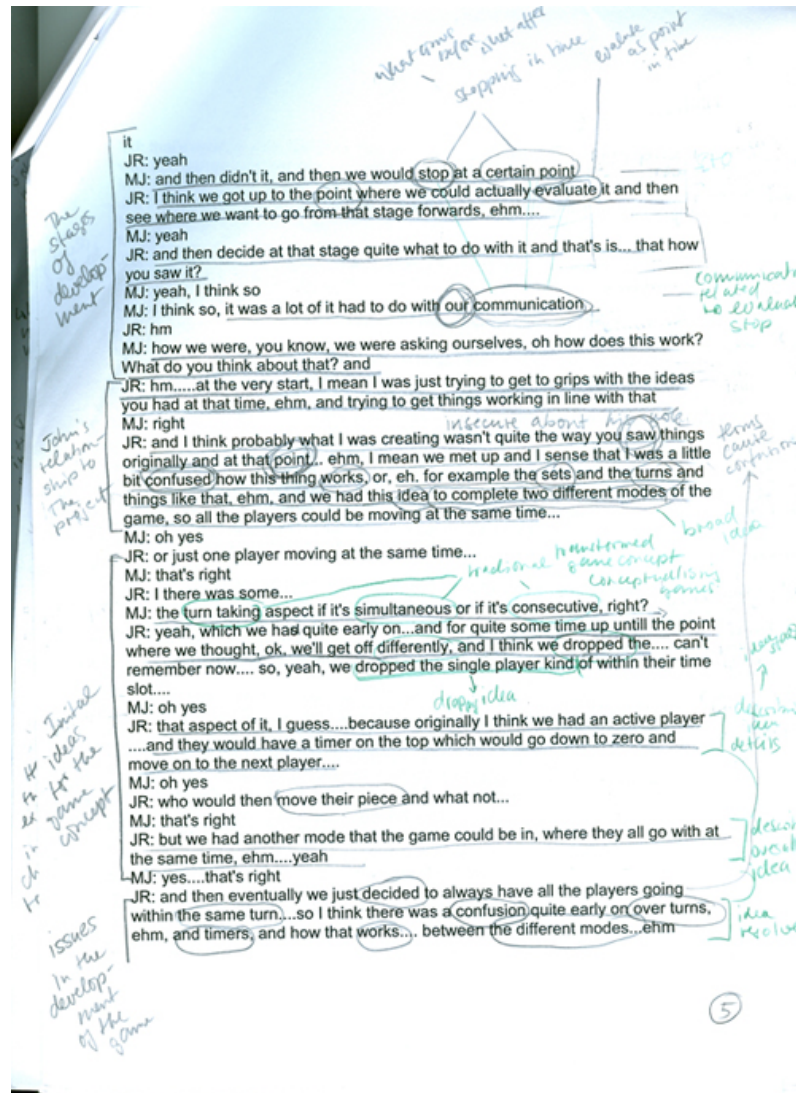 what comes
before what after
stopping in time
evaluate
as point
in time
it
JR: yeah
MJ: and then didn't it, and then we would stop at a certain point
JR: I think we got up to the point where we could actually evaluate it and then
see where we want to go from that stage forwards, ehm....
MJ: yeah
JR: and then decide at that stage quite what to do with it and that's is... that how
you saw it?
MJ: yeah, I think so
MJ: I think so, it was a lot of it had to do with our communication
JR: hm
MJ: how we were, you know, we were asking ourselves, oh how does this work?
What do you think about that? and
The
stages
of
develop-
ment
communicati
related
to evaluat
stop
JR: hm.....at the very start, I mean I was just trying to get to grips with the ideas
you had at that time, ehm, and trying to get things working in line with that
MJ: right
insecure about his role
JR: and I think probably what I was creating wasn't quite the way you saw things
originally and at that point... ehm, I mean we met up and I sense that I was a little
bit confused how this thing works, or, eh. for example the sets and the turns and
things like that, ehm, and we had this idea to complete two different modes of the
game, so all the players could be moving at the same time...
MJ: oh yes
John's
relation-
ship to
the
project
terms
cause
confusion
broad
idea
JR: or just one player moving at the same time...
MJ: that's right
JR: I there was some...
traditional transformed
game concept
conceptualising
games
MJ: the turn taking aspect if it's simultaneous or if it's consecutive, right?
JR: yeah, which we had quite early on...and for quite some time up untill the point
where we thought, ok, we'll get off differently, and I think we dropped the.... can't
remember now.... so, yeah, we dropped the single player kind of within their time
slot....
dropp idea
MJ: oh yes
JR: that aspect of it, I guess....because originally I think we had an active player
....and they would have a timer on the top which would go down to zero and
move on to the next player....
MJ: oh yes
JR: who would then move their piece and what not...
MJ: that's right
JR: but we had another mode that the game could be in, where they all go with at
the same time, ehm....yeah
MJ: yes....that's right
Initial
ideas
for the
game
concept
details
idea
JR: and then eventually we just decided to always have all the players going
within the same turn....so I think there was a confusion quite early on over turns,
ehm, and timers, and how that works.... between the different modes...ehm
issues
in the
develop-
ment
of the
game
idea
resolve
5